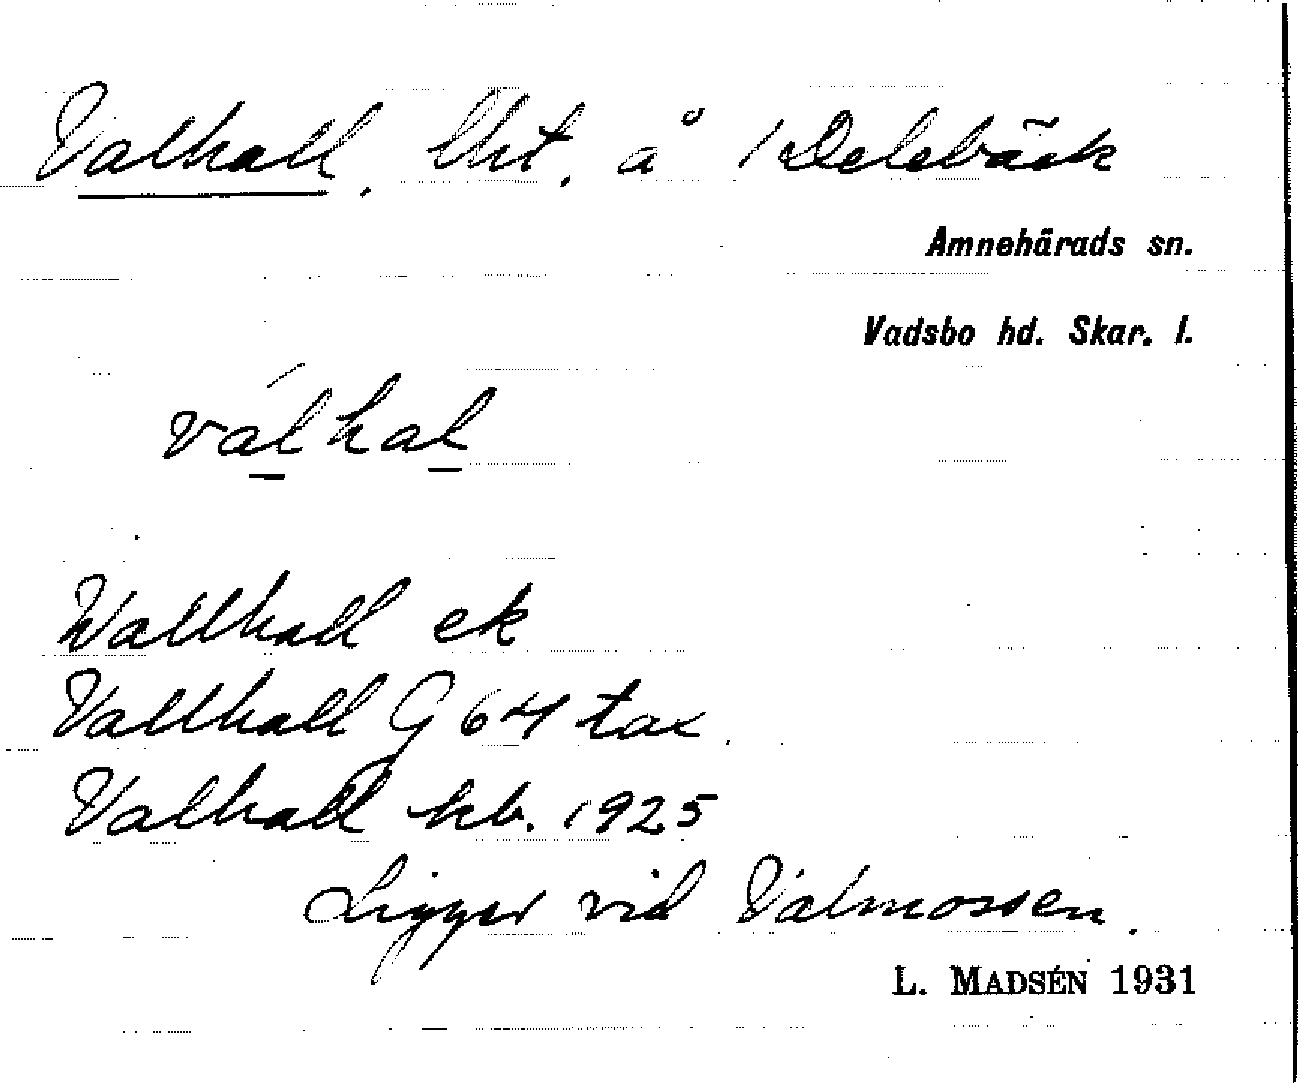 Valhall, lht. å 1 Delebäck
Amnehärads sn.
Vadsbo hd. Skar. l.
válhal
Wallhall ek
Vallhall G 64 tax.
Valhall kb. 1925
Ligger vid Valmossen.
L. MADSÉN 1931